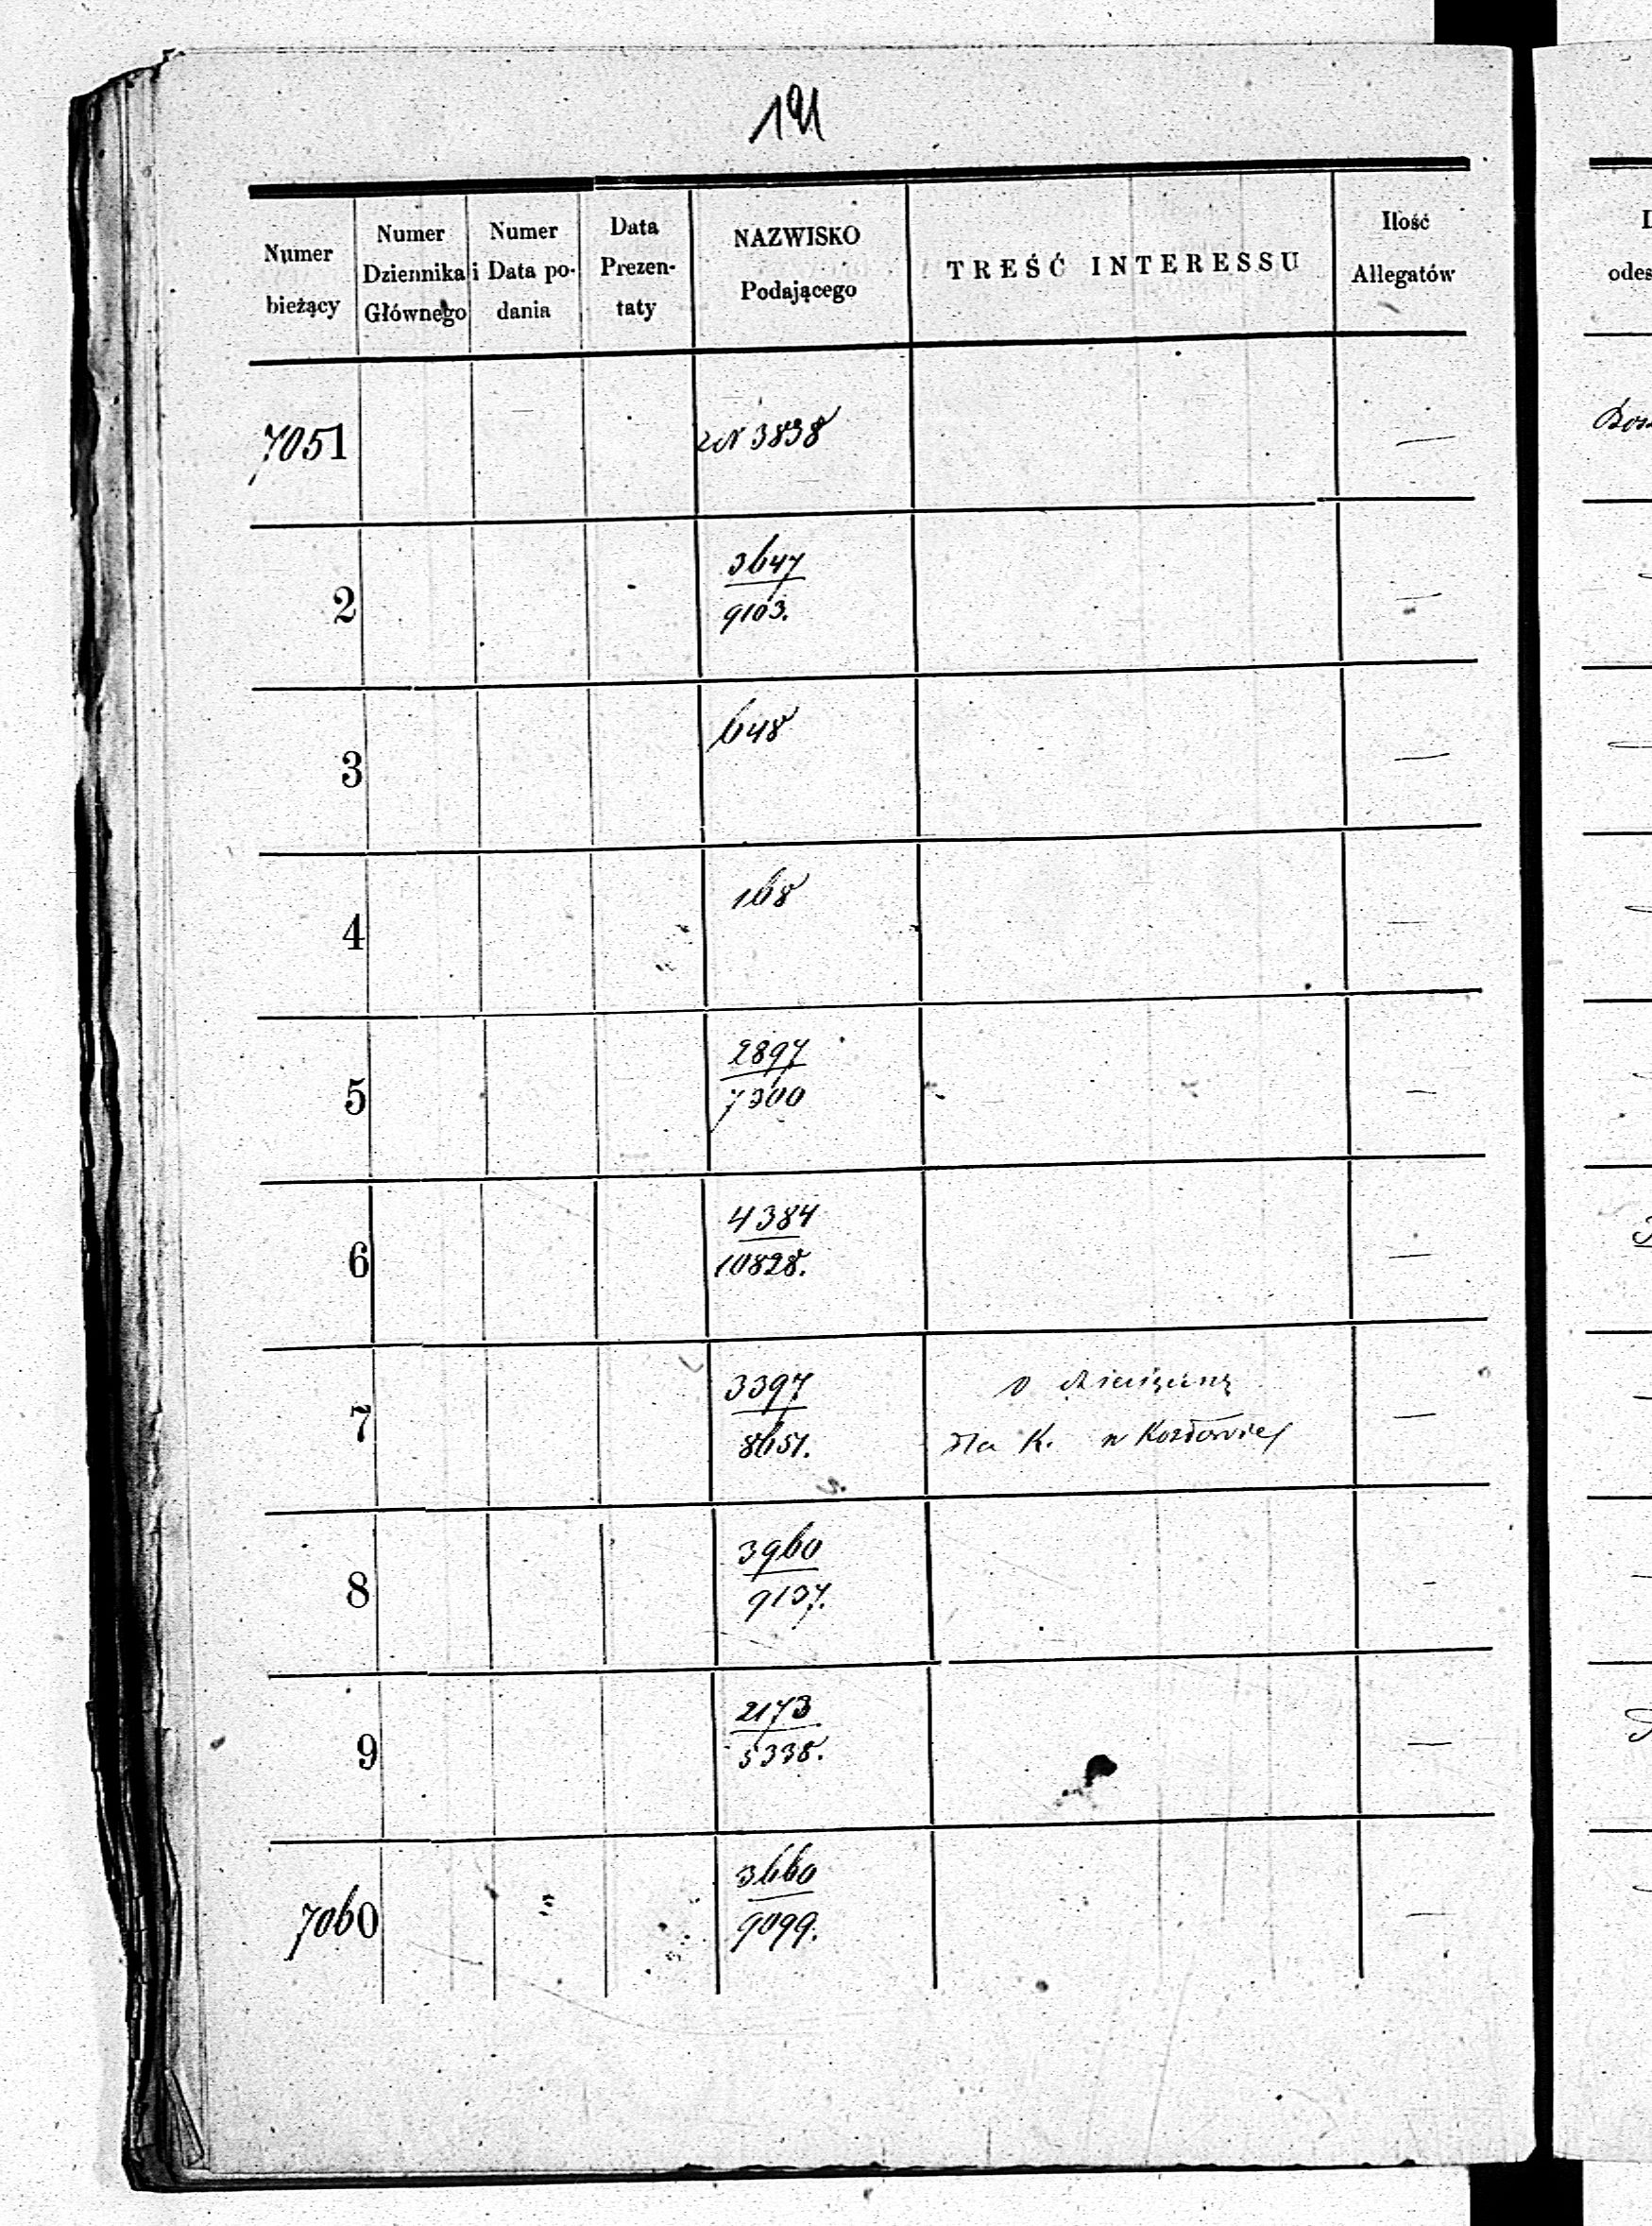 191
Numer bieżący
Numer Dziennika Głównego
Numer i Data podania
Data Prezentaty
NAZWISKO Podającego
TREŚĆ INTERESSU
Ilość Allegatów
7051 3838 —
2 3647 —
9103.
3 648 —
4 168 —
5 2897 —
7300
6 4384 —
10828.
7 3397 o —
8651. dla K. w
8 3960 —
9137.
9 2173 —
5338.
7060 3660 —
9099.